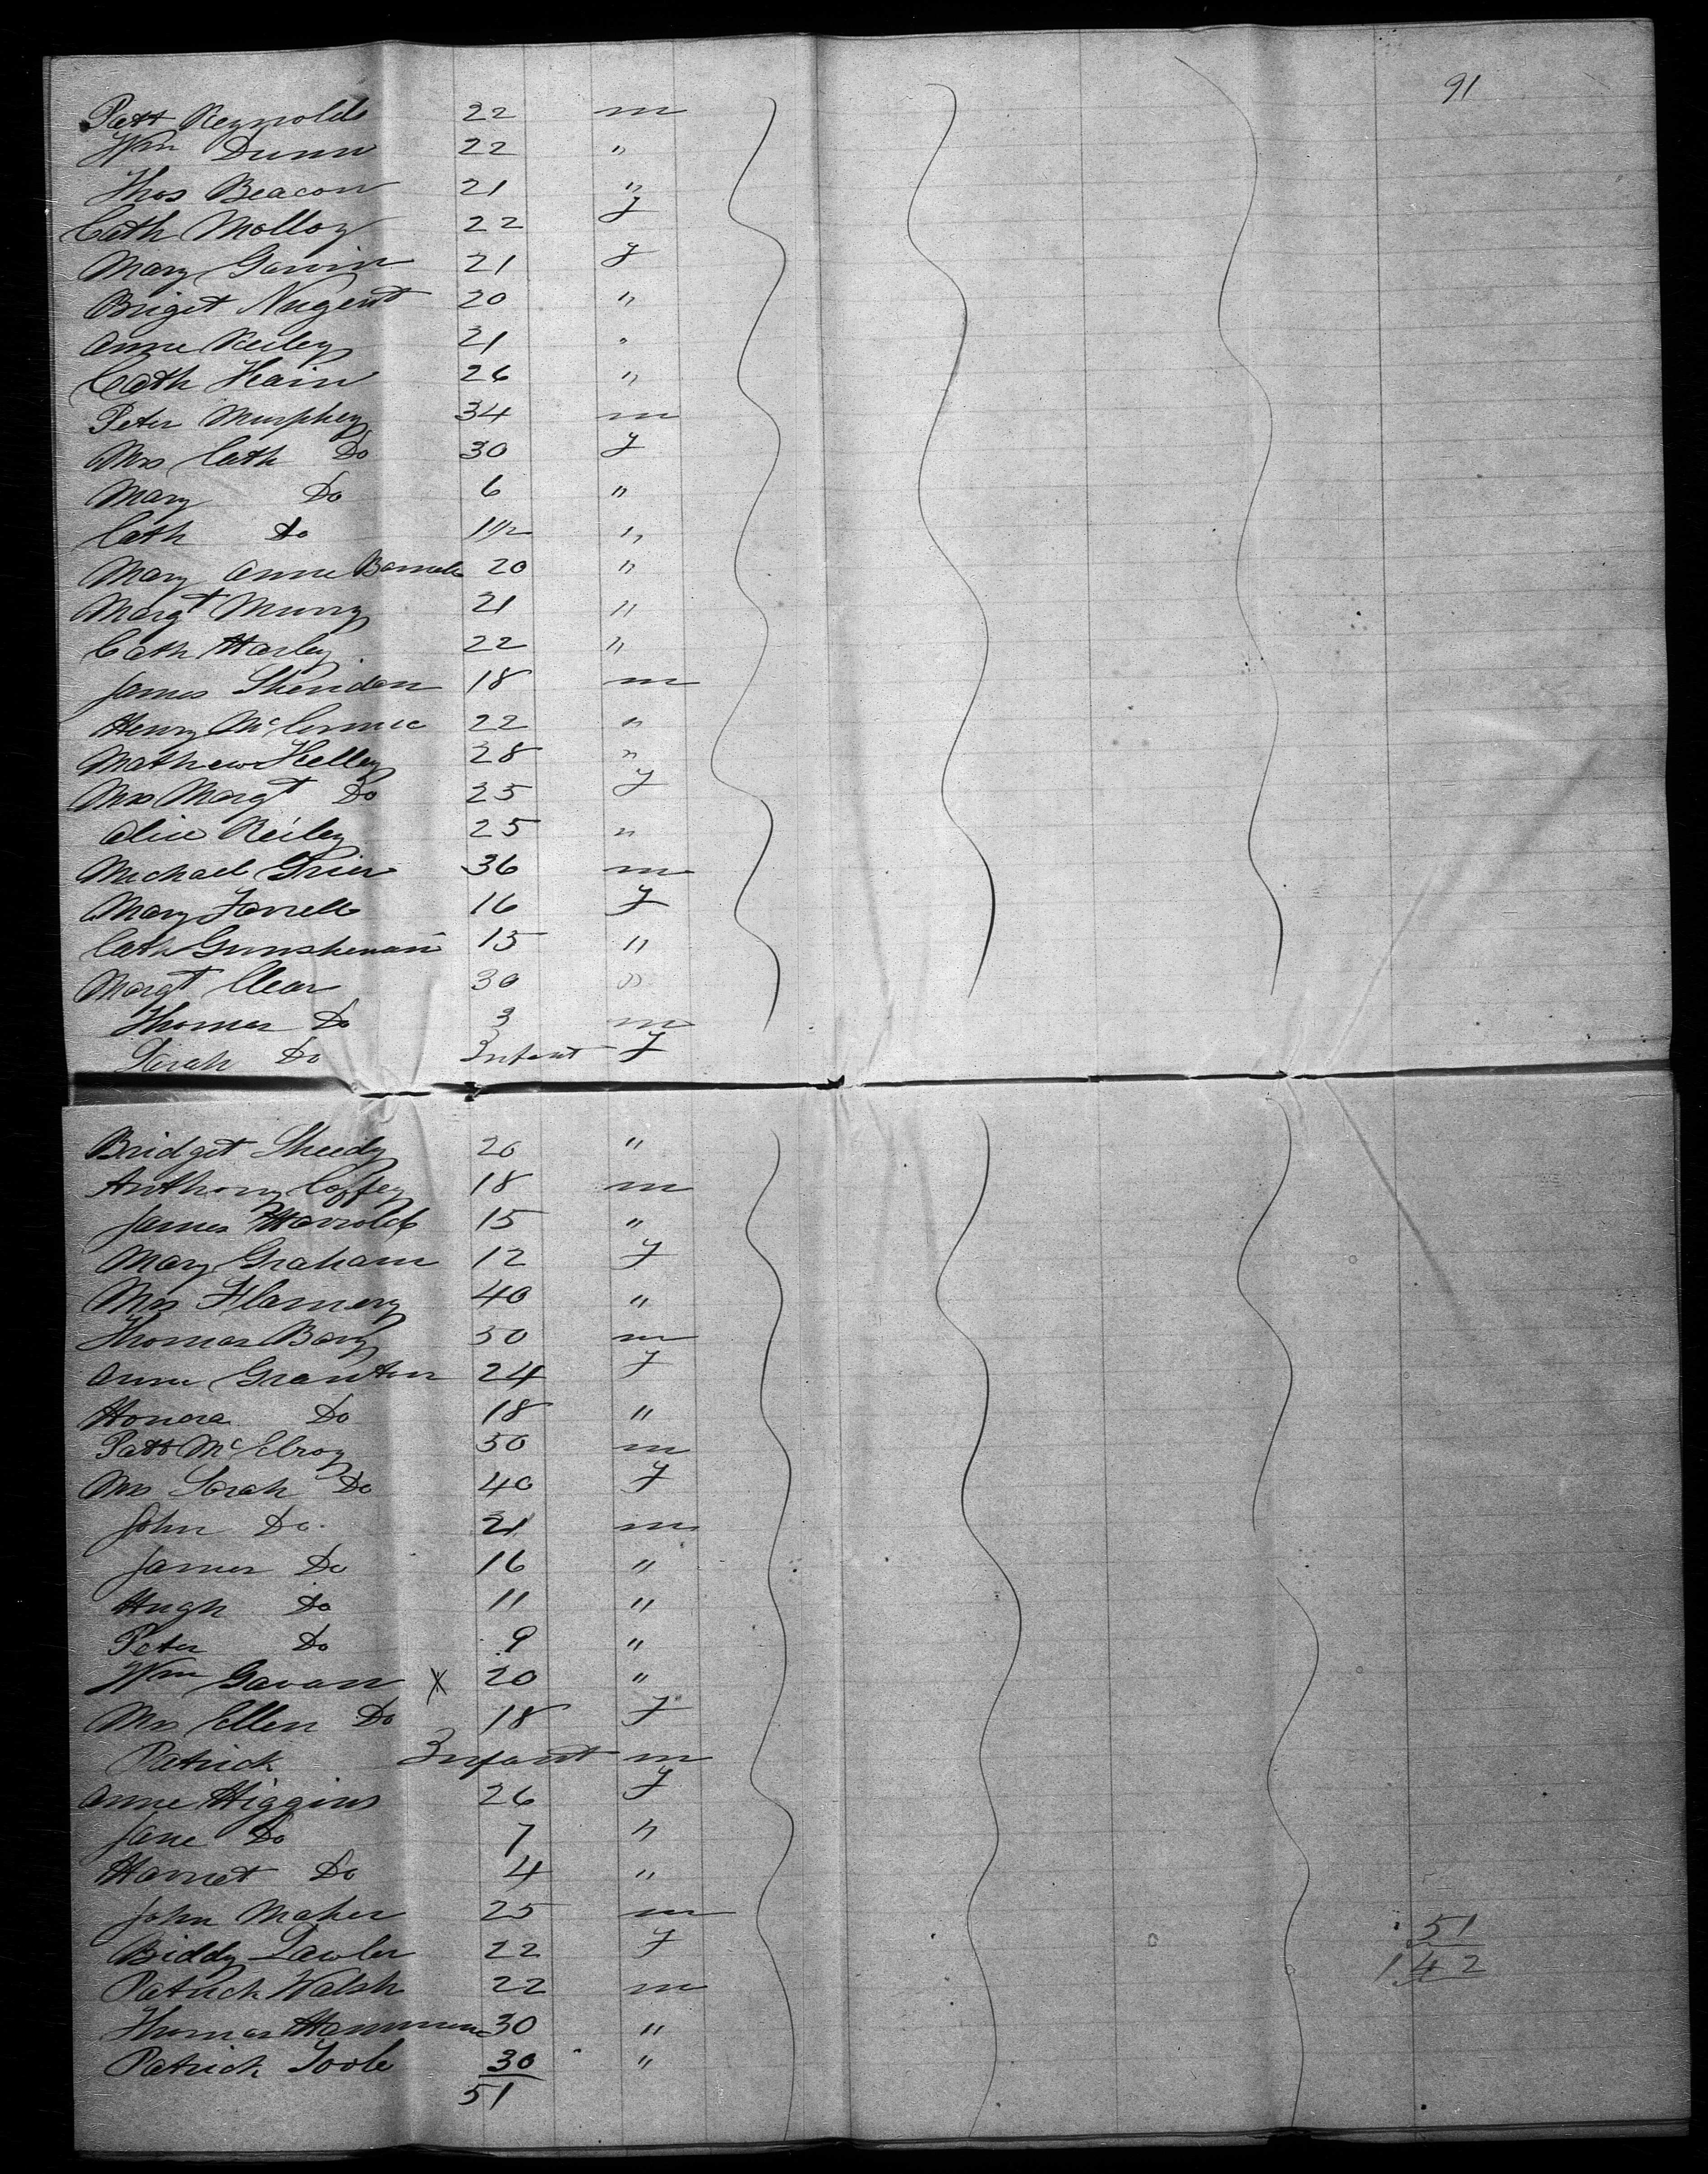 91
Patt Reynolds 22 m
Wm Dunn 22 "
Thos Beacon 21 "
Cath Molloy 22 f
Mary Gavin 21 f
Briget Nugent 20 "
Anne Reiley 21 "
Cath Hain 26 "
Peter Murphey 34 m
Mrs Cath Do 30 f
Mary Do 6 "
Cath Do 1 1/2 "
Mary Anne 20 "
Margt Murry 21 "
Cath Harley 22 "
James Sheridan 18 m
Henry McCormic 22 "
Mathew Kelley 28 "
Mrs Margt Do 25 f
Alice Reiley 25 "
Michael Grier 36 m
Mary Farrell 16 f
Cath 15 "
Margt Clear 30 "
Thomas Do 3 m
Sarah Do Infant f
Bridget Sheedy 20 "
Anthony Coffey 18 m
James Harrold 15 "
Mary Graham 12 f
Mrs Flamery 40 "
Thomas Bary 50 m
Anne Granten 24 f
Honora Do 18 "
Patt McElroy 50 m
Mrs Sarah Do 40 f
John Do 21 m
James Do 16 "
Hugh Do 11 "
Peter Do 9 "
Wm Gavan X 20 "
Mrs Ellen Do 18 f
Patrick Infant m
Anne Higgins 26 f
Jane Do 7 "
Harriet Do 4 "
John Maher 25 m
Biddy Lawler 22 f 51
Patrick Walsh 22 m 142
Thomas 30 "
Patrick Toole 30 "
51